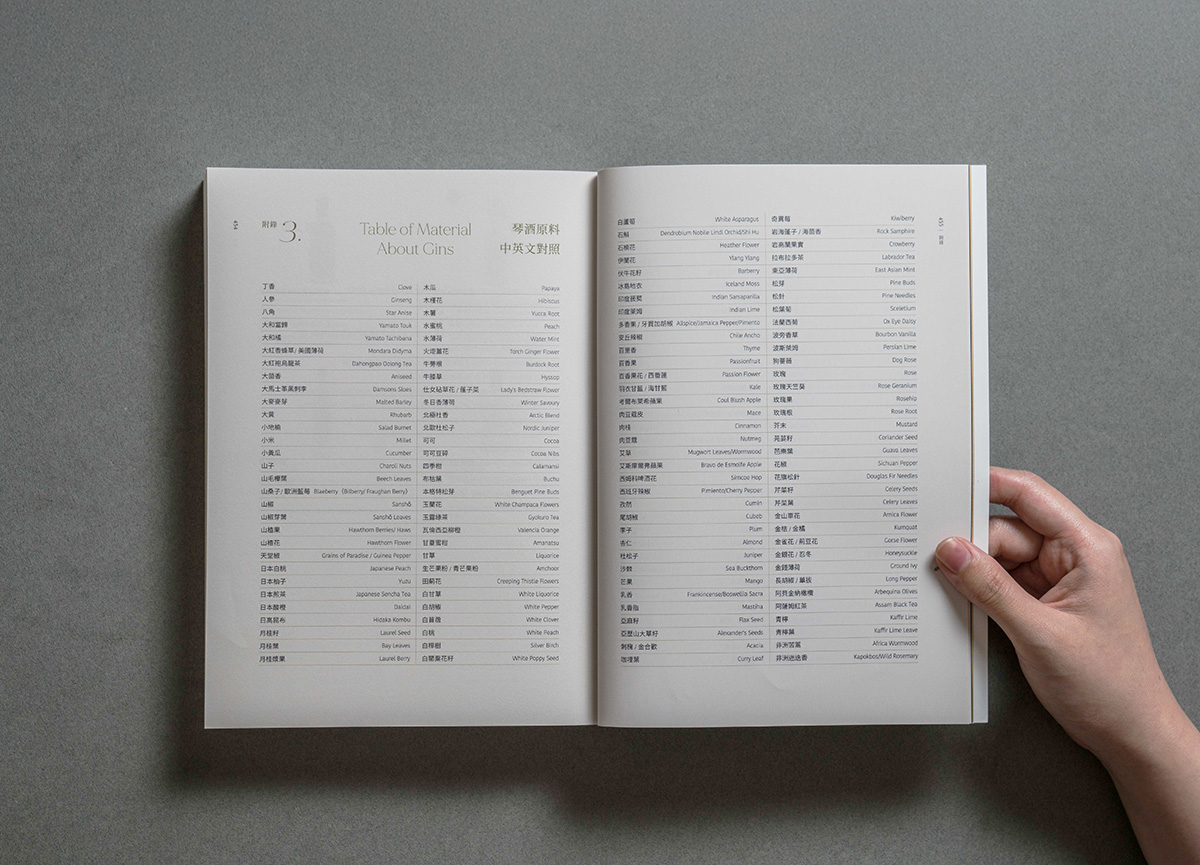 454
附錄 3.
Table of Material
About Gins
琴酒原料
中英文對照
丁香 Clove
人參 Ginseng
八角 Star Anise
大和當歸 Yamato Touk
大和橘 Yamato Tachibana
大紅香蜂草/美國薄荷 Mondara Didyma
大紅袍烏龍茶 Dahongpao Oolong Tea
大茴香 Aniseed
大馬士革黑刺李 Damsons Sloes
大麥麥芽 Malted Barley
大黃 Rhubarb
小地榆 Salad Burnet
小米 Millet
小黃瓜 Cucumber
山子 Charoli Nuts
山毛櫸葉 Beech Leaves
山桑子/歐洲藍莓 Blaeberry (Bilberry/ Fraughan Berry)
山椒 Sanshō
山椒芽葉 Sanshō Leaves
山楂果 Hawthorn Berries/ Haws
山楂花 Hawthorn Flower
天堂椒 Grains of Paradise / Guinea Pepper
日本白桃 Japanese Peach
日本柚子 Yuzu
日本煎茶 Japanese Sencha Tea
日本酸橙 Daidai
日高昆布 Hidaka Kombu
月桂籽 Laurel Seed
月桂葉 Bay Leaves
月桂漿果 Laurel Berry
木瓜 Papaya
木槿花 Hibiscus
木薯 Yucca Root
水蜜桃 Peach
水薄荷 Water Mint
火炬薑花 Torch Ginger Flower
牛蒡根 Burdock Root
牛膝草 Hyssop
仕女砧草花/蓬子菜 Lady's Bedstraw Flower
冬日香薄荷 Winter Savoury
北極杜香 Arctic Blend
北歐杜松子 Nordic Juniper
可可 Cocoa
可可豆碎 Cocoa Nibs
四季柑 Calamansi
布枯葉 Buchu
本格特松芽 Benguet Pine Buds
玉蘭花 White Champaca Flowers
玉露綠茶 Gyokuro Tea
瓦倫西亞柳橙 Valencia Orange
甘夏蜜柑 Amanatsu
甘草 Liquorice
生芒果粉/青芒果粉 Amchoor
田薊花 Creeping Thistle Flowers
白甘草 White Liquorice
白胡椒 White Pepper
白苜蓿 White Clover
白桃 White Peach
白樺樹 Silver Birch
白罌粟花籽 White Poppy Seed
白蘆筍 White Asparagus
石斛 Dendrobium Nobile Lindl.Orchid/Shi Hu
石楠花 Heather Flower
伊蘭花 Ylang Ylang
伏牛花籽 Barberry
冰島地衣 Iceland Moss
印度菝葜 Indian Sarsaparilla
印度萊姆 Indian Lime
多香果/牙買加胡椒 Allspice/Jamaica Pepper/Pimento
安丘辣椒 Chile Ancho
百里香 Thyme
百香果 Passionfruit
百香果花/西番蓮 Passion Flower
羽衣甘藍/海甘藍 Kale
考爾布萊希蘋果 Coul Blush Apple
肉豆蔻皮 Mace
肉桂 Cinnamon
肉豆蔻 Nutmeg
艾草 Mugwort Leaves/Wormwood
艾斯摩爾弗蘋果 Bravo de Esmolfe Apple
西姆科啤酒花 Simcoe Hop
西班牙辣椒 Pimiento/Cherry Pepper
孜然 Cumin
尾胡椒 Cubeb
李子 Plum
杏仁 Almond
杜松子 Juniper
沙棘 Sea Buckthorn
芒果 Mango
乳香 Frankincense/Boswellia Sacra
乳香脂 Mastiha
亞麻籽 Flax Seed
亞歷山大草籽 Alexander's Seeds
刺槐/金合歡 Acacia
咖哩葉 Curry Leaf
奇異莓 Kiwiberry
岩海蓬子/海茴香 Rock Samphire
岩高蘭果實 Crowberry
拉布拉多茶 Labrador Tea
東亞薄荷 East Asian Mint
松芽 Pine Buds
松針 Pine Needles
松葉菊 Sceletium
法蘭西菊 Ox Eye Daisy
波旁香草 Bourbon Vanilla
波斯萊姆 Persian Lime
狗薔薇 Dog Rose
玫瑰 Rose
玫瑰天竺葵 Rose Geranium
玫瑰果 Rosehip
玫瑰根 Rose Root
芥末 Mustard
芫荽籽 Coriander Seed
芭樂葉 Guava Leaves
花椒 Sichuan Pepper
花旗松針 Douglas Fir Needles
芹菜籽 Celery Seeds
芹菜葉 Celery Leaves
金山車花 Arnica Flower
金桔/金橘 Kumquat
金雀花/荊豆花 Gorse Flower
金銀花/忍冬 Honeysuckle
金錢薄荷 Ground Ivy
長胡椒/蓽拔 Long Pepper
阿貝金納橄欖 Arbequina Olives
阿薩姆紅茶 Assam Black Tea
青檸 Kaffir Lime
青檸葉 Kaffir Lime Leave
非洲苦蒿 Africa Wormwood
非洲迷迭香 Kapokbos/Wild Rosemary
455 | 附錄